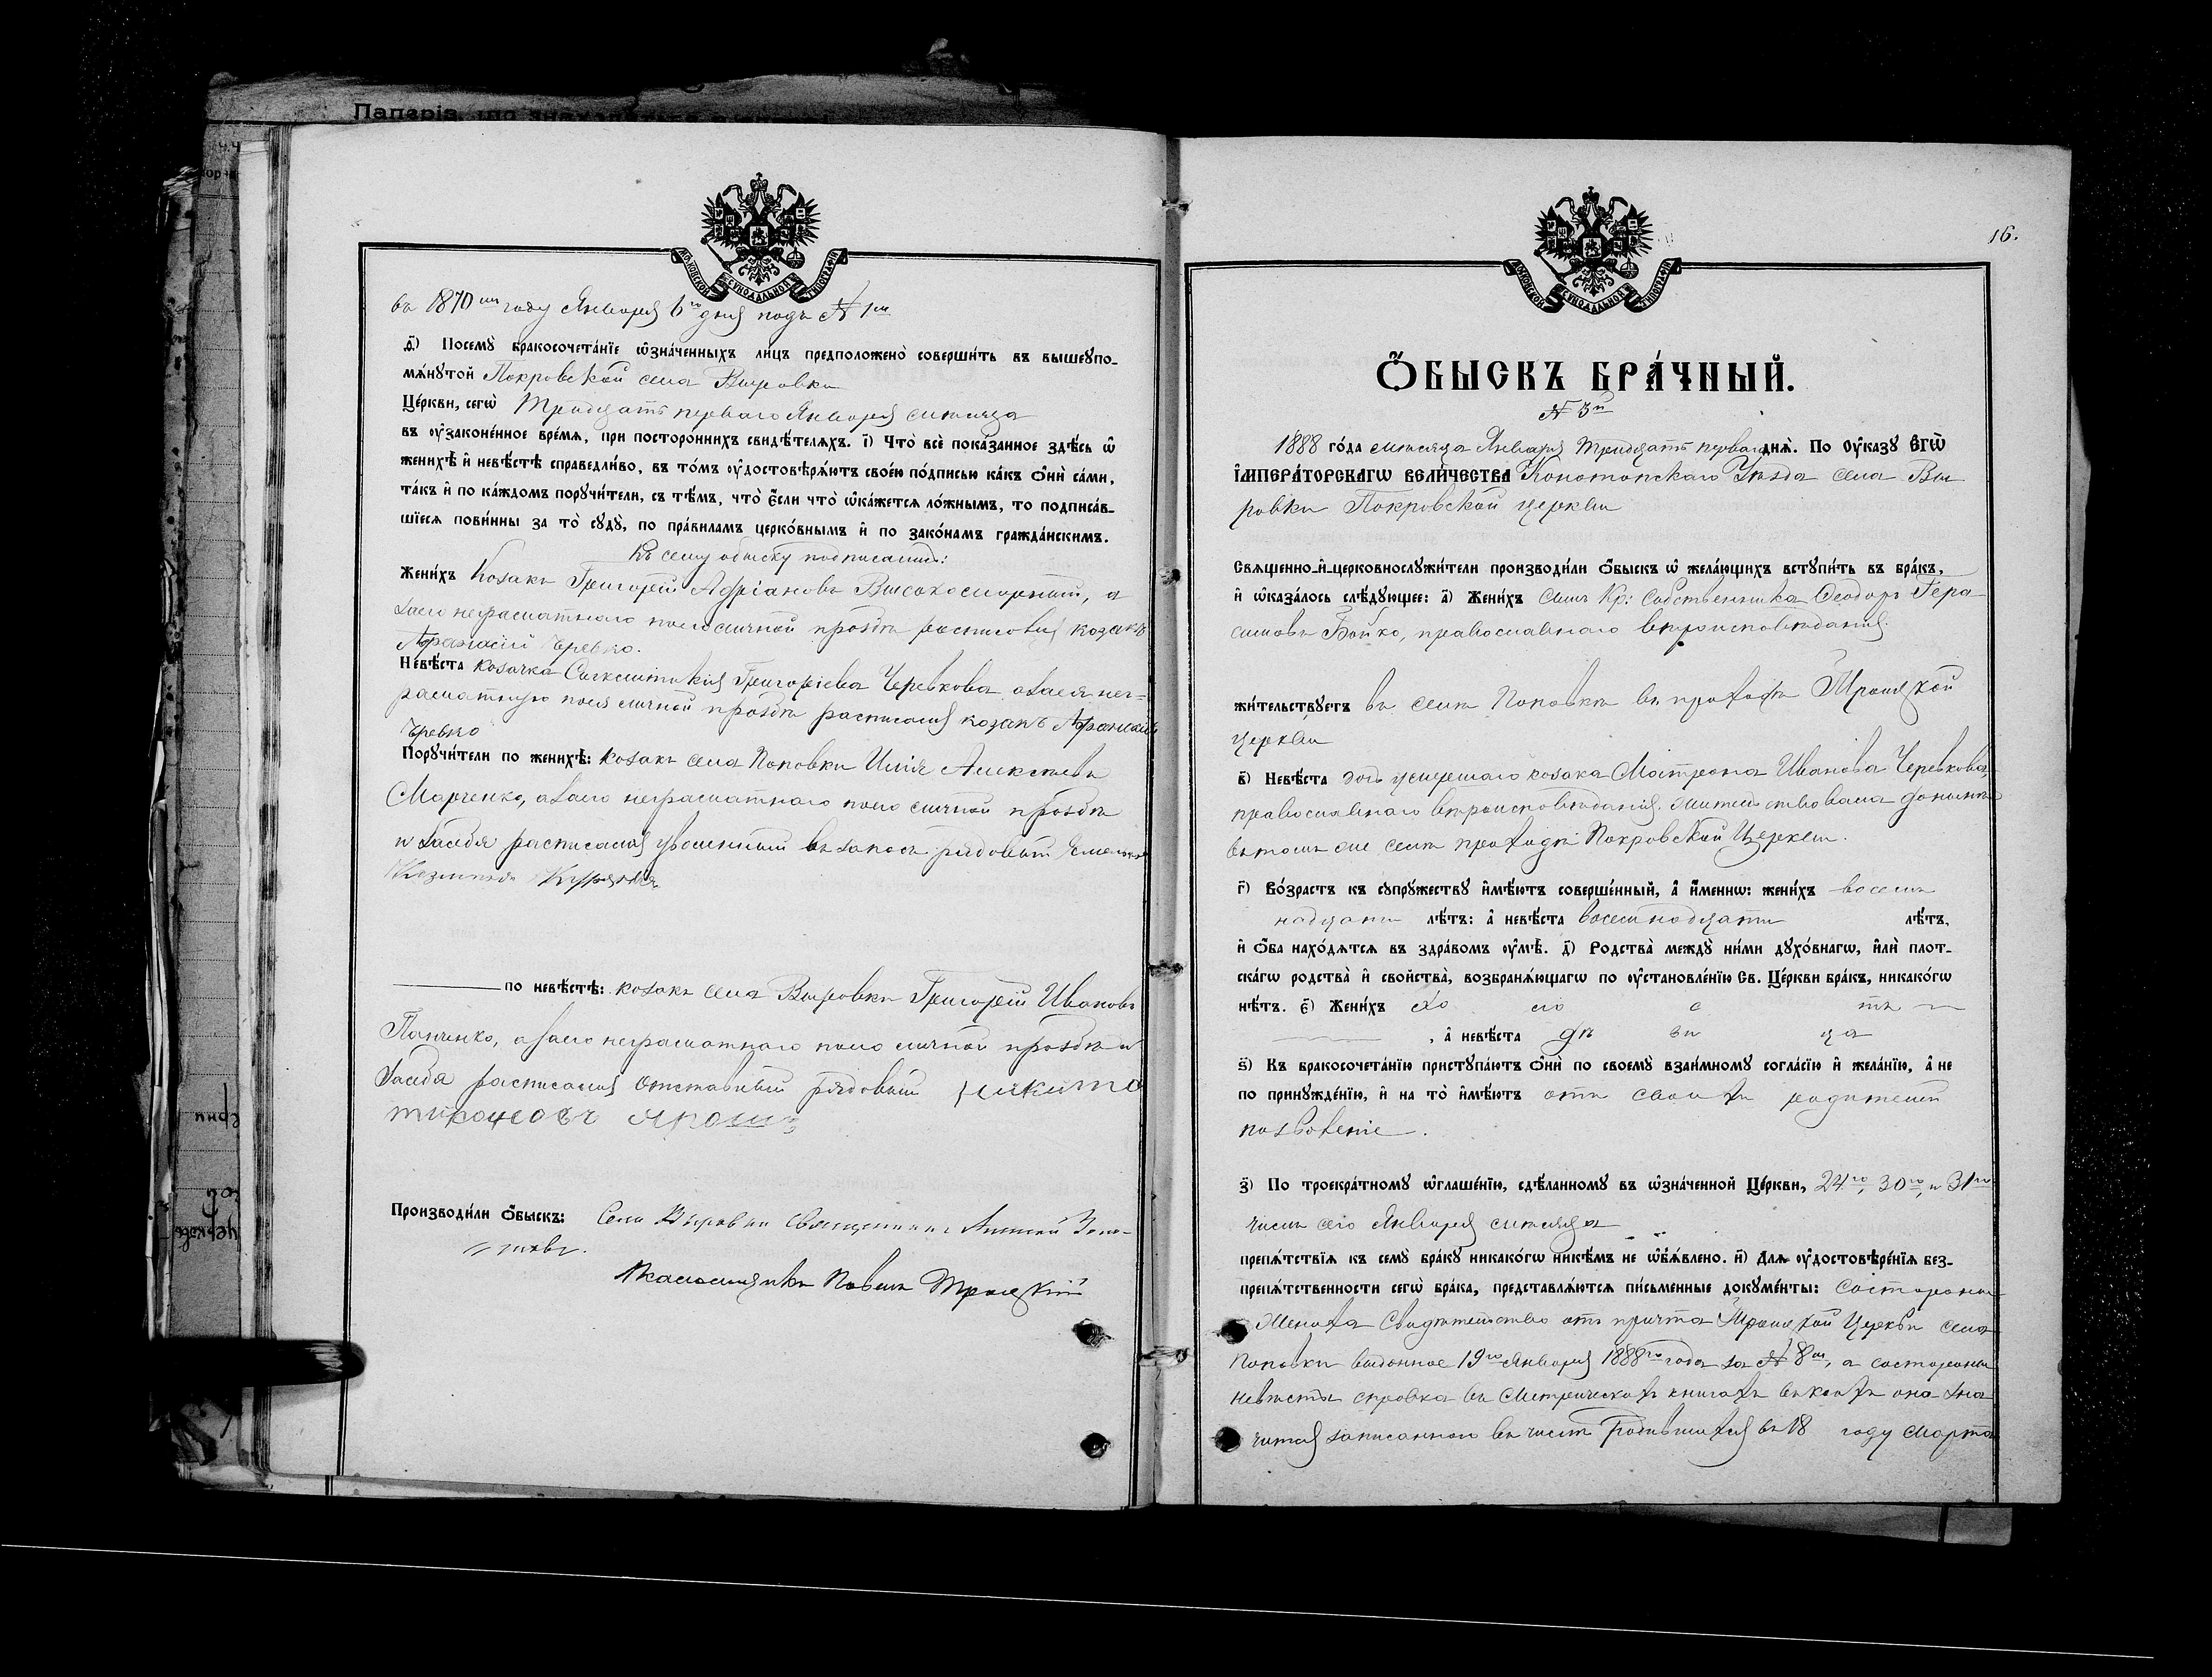 Паперів, що
МОСКОВСКОЙ СѴНОДАЛЬНОЙ ТИПОГРАФІИ
въ 1870мъ году Января 6го дня подъ № 1мъ
ѳ҃) Посемꙋ̀ бракосочета́нїе ѡ҆зна́ченныхъ ли́цъ предположено̀ соверши́ть въ вышеꙋпо-
мѧ́нꙋтой Покровской села Выровки
Це́ркви, сегѡ̀ Тридцать перваго Января месяца
въ ᲂу҆законе́нное вре́мѧ, при посторо́ннихъ свидѣ́телѧхъ. і҃) Что̀ всѐ пока́занное здѣ́сь ѡ҆
женихѣ̀ и҆ невѣ́стѣ справедли́во, въ то́мъ ᲂу҆достовѣрѧ́ютъ свое́ю по́дписью ка́къ ѻ҆нѝ са́ми,
та́къ и҆ по ка́ждомъ порꙋчи́тели, съ тѣ́мъ, что̀ є҆́сли что̀ ѡ҆ка́жетсѧ ло́жнымъ, то подписа́в-
шїесѧ пови́нны за то̀ сꙋдꙋ̀, по пра́виламъ церко́внымъ и҆ по зако́намъ гражда́нскимъ.
Къ сему обыску подписались:
Жени́хъ Козакъ Григорей Адріановъ Высокосмертный, а
заего неграматнаго поего личной прозбе росписовця козакъ
Афанасій Черевко.
Невѣ́ста козачка Григорієва Черевкова, азаея нег-
раматную поея личной прозбе расписался козакъ Афанасій
Черевко
Порꙋчи́тели по женихѣ̀: козакъ села Поповки Илія Алексеевъ
Марченко, азаего неграматнаго поего личной прозбе
и засебя расписался уволенный въ запасъ рядовый Емельянъ
по невѣ́стѣ: козакъ села Выровки Григорій Ивановъ
Панченко, азаего неграматнаго поего личной прозбе и
засебя расписался отставный рядовый Никита
Производи́ли ѻ҆́быскъ: Села Выровки Священникъ
Псаломщикъ Павелъ Троицкій
16.
МОСКОВСКОЙ СѴНОДАЛЬНОЙ ТИПОГРАФІИ
Ѻ҆́БЫСКЪ БРА́ЧНЫЙ.
№ 5й
1888 го́да месяца Января Тридцать перваго днѧ̀. По Оу҆ка́зꙋ Є҆ГѠ̀
І҆МПЕРА́ТОРСКАГѠ ВЕЛИ́ЧЕСТВА Конотопскаго Уезда села Вы
ровки Покровской церкви
Свѧще́нно-и҆-церковнослꙋжи́тели производи́ли ѻ҆́быскъ ѡ҆ жела́ющихъ встꙋпи́ть въ бра́къ,
и҆ ѡ҆каза́лось слѣ́дꙋющее: а҃) Жени́хъ сынъ Кр: Собственника Ѳеодоръ Гера
симовъ Бойко, православнаго вероисповеданія.
жи́тельствꙋетъ въ селе Поповке въ приходе Троицкой
церкви
в҃) Невѣ́ста дочь умершаго козака Матрона Иванова Черевкова,
православнаго вероисповеданія. жительствовала доныне
въ томъ же селе приходе Покровской Церкви.
г҃) Во́зрастъ къ сꙋпрꙋ́жествꙋ и҆мѣ́ютъ соверше́нный, а҆ и҆́меннѡ: жени́хъ восем
надцати лѣ́тъ: а҆ невѣ́ста восемнадцати лѣ́тъ,
и҆ ѻ҆́ба нахо́дѧтсѧ въ здра́вомъ ᲂу҆мѣ̀. д҃) Родства̀ междꙋ̀ ни́ми дꙋхо́внагѡ, и҆лѝ плот-
ска́гѡ родства̀ и҆ сво́йства, возбранѧ́ющагѡ по ᲂу҆становле́нїю Св. Це́ркви бра́къ, никако́гѡ
нѣ́тъ. є҃) Жени́хъ хо ло с тъ
, а҆ невѣ́ста де ви ца
ѕ҃) Къ бракосочета́нїю пристꙋпа́ютъ ѻ҆нѝ по своемꙋ̀ взаи́мномꙋ согла́сїю и҆ жела́нїю, а҆ не
по принꙋжде́нїю, и҆ на то̀ и҆мѣ́ютъ отъ своихъ родителей
позволеніе.
з҃) По троекра́тномꙋ ѡ҆глаше́нїю, сдѣ́ланномꙋ въ ѡ҆зна́ченной Це́ркви, 24го, 30го, и 31го
числъ сего Января месяца
препѧ́тствїѧ къ семꙋ̀ бра́кꙋ никако́гѡ никѣ́мъ не ѡ҆б̾ѧ́влено. и҃) Длѧ ᲂу҆достовѣре́нїѧ без-
препѧ́тственности сегѡ̀ бра́ка, представлѧ́ютсѧ пи́сьменные докꙋме́нты: состороны
Жениха Свидетельство отъ причта Троицкой Церкви села
Поповки выданное 19го Января 1888го года за № 8м, а состороны
невесты справка въ Метрическихъ книгахъ въ коихъ она зна
чится записанною въ числе родившихся въ 18 году Марта